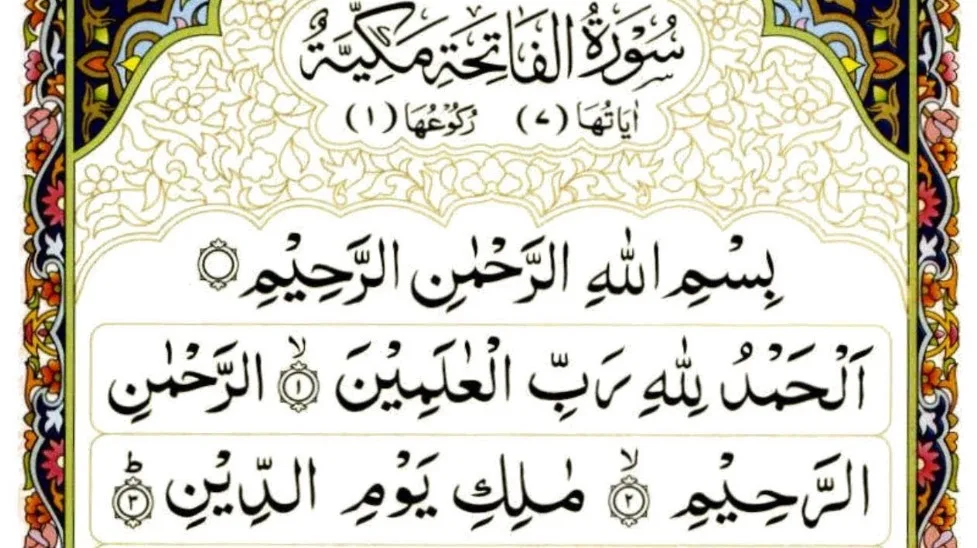 سُوْرَةُ الْفَاتِحَةِ مَكِّيَّةٌ
اٰيَاتُهَا (٧) رُكُوْعُهَا (١)
بِسْمِ اللّٰهِ الرَّحْمٰنِ الرَّحِيْمِ ۝
اَلْحَمْدُ لِلّٰهِ رَبِّ الْعٰلَمِيْنَ ۙ﴿١﴾ الرَّحْمٰنِ
الرَّحِيْمِ ۙ﴿٢﴾ مٰلِكِ يَوْمِ الدِّيْنِ ؕ﴿٣﴾